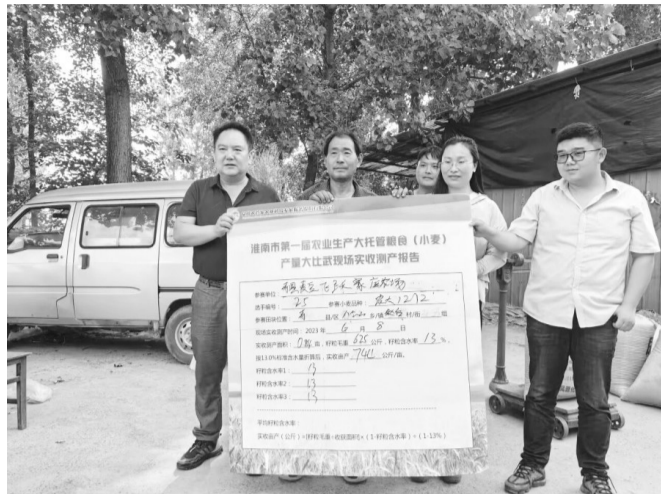 淮南市第一届农业生产大托管粮食（小麦）
产量大比武现场实收测产报告
参赛单位：
选手编号： 25 参赛小麦品种： 农大1212
参赛田块位置： 寿 县/区 乡/镇 村/街 组
现场实收测产时间：2023 年 6 月 8 日
实收测产面积： 亩，籽粒毛重 625 公斤，籽粒含水率 13 %，
按13.0%标准含水量折算后，实收亩产 741 公斤/亩。
籽粒含水率1 13
籽粒含水率2 13
籽粒含水率3 13
平均籽粒含水率：
实收亩产（公斤）=[籽粒毛重÷收获面积]×（1-籽粒含水率）÷（1-13%）